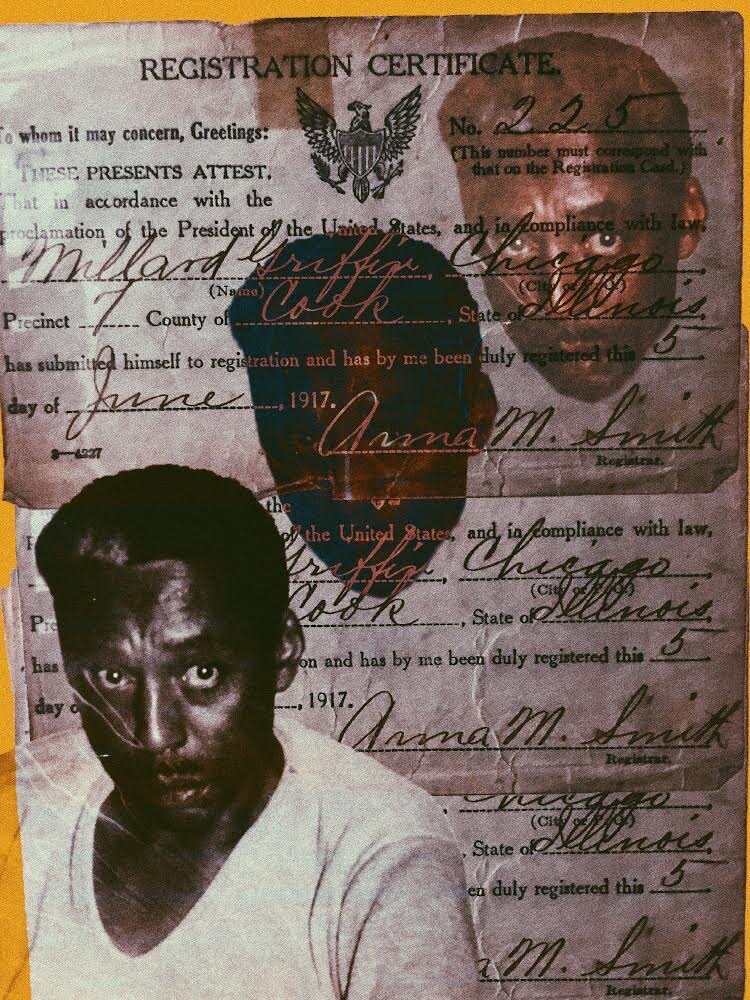 REGISTRATION CERTIFICATE.
To whom it may concern, Greetings:
No. 225
(This number must correspond with
that on the Registration Card.)
THESE PRESENTS ATTEST,
That in accordance with the
proclamation of the President of the United States, and in compliance with law,
Millard Griffin, Chicago,
(Name) (City or P.O.)
Precinct 7 County of Cook, State of Illinois,
has submitted himself to registration and has by me been duly registered this 5
day of June, 1917.
Anna M. Smith
3—4227
Registrar.
the
of the United States, and in compliance with law,
Griffin, Chicago
(City or P.O.)
Pre Cook, State of Illinois,
has on and has by me been duly registered this 5
day o , 1917.
Anna M. Smith
Registrar.
Chicago
(City or P.O.)
, State of Illinois,
en duly registered this 5
a M. Smith
Registrar.